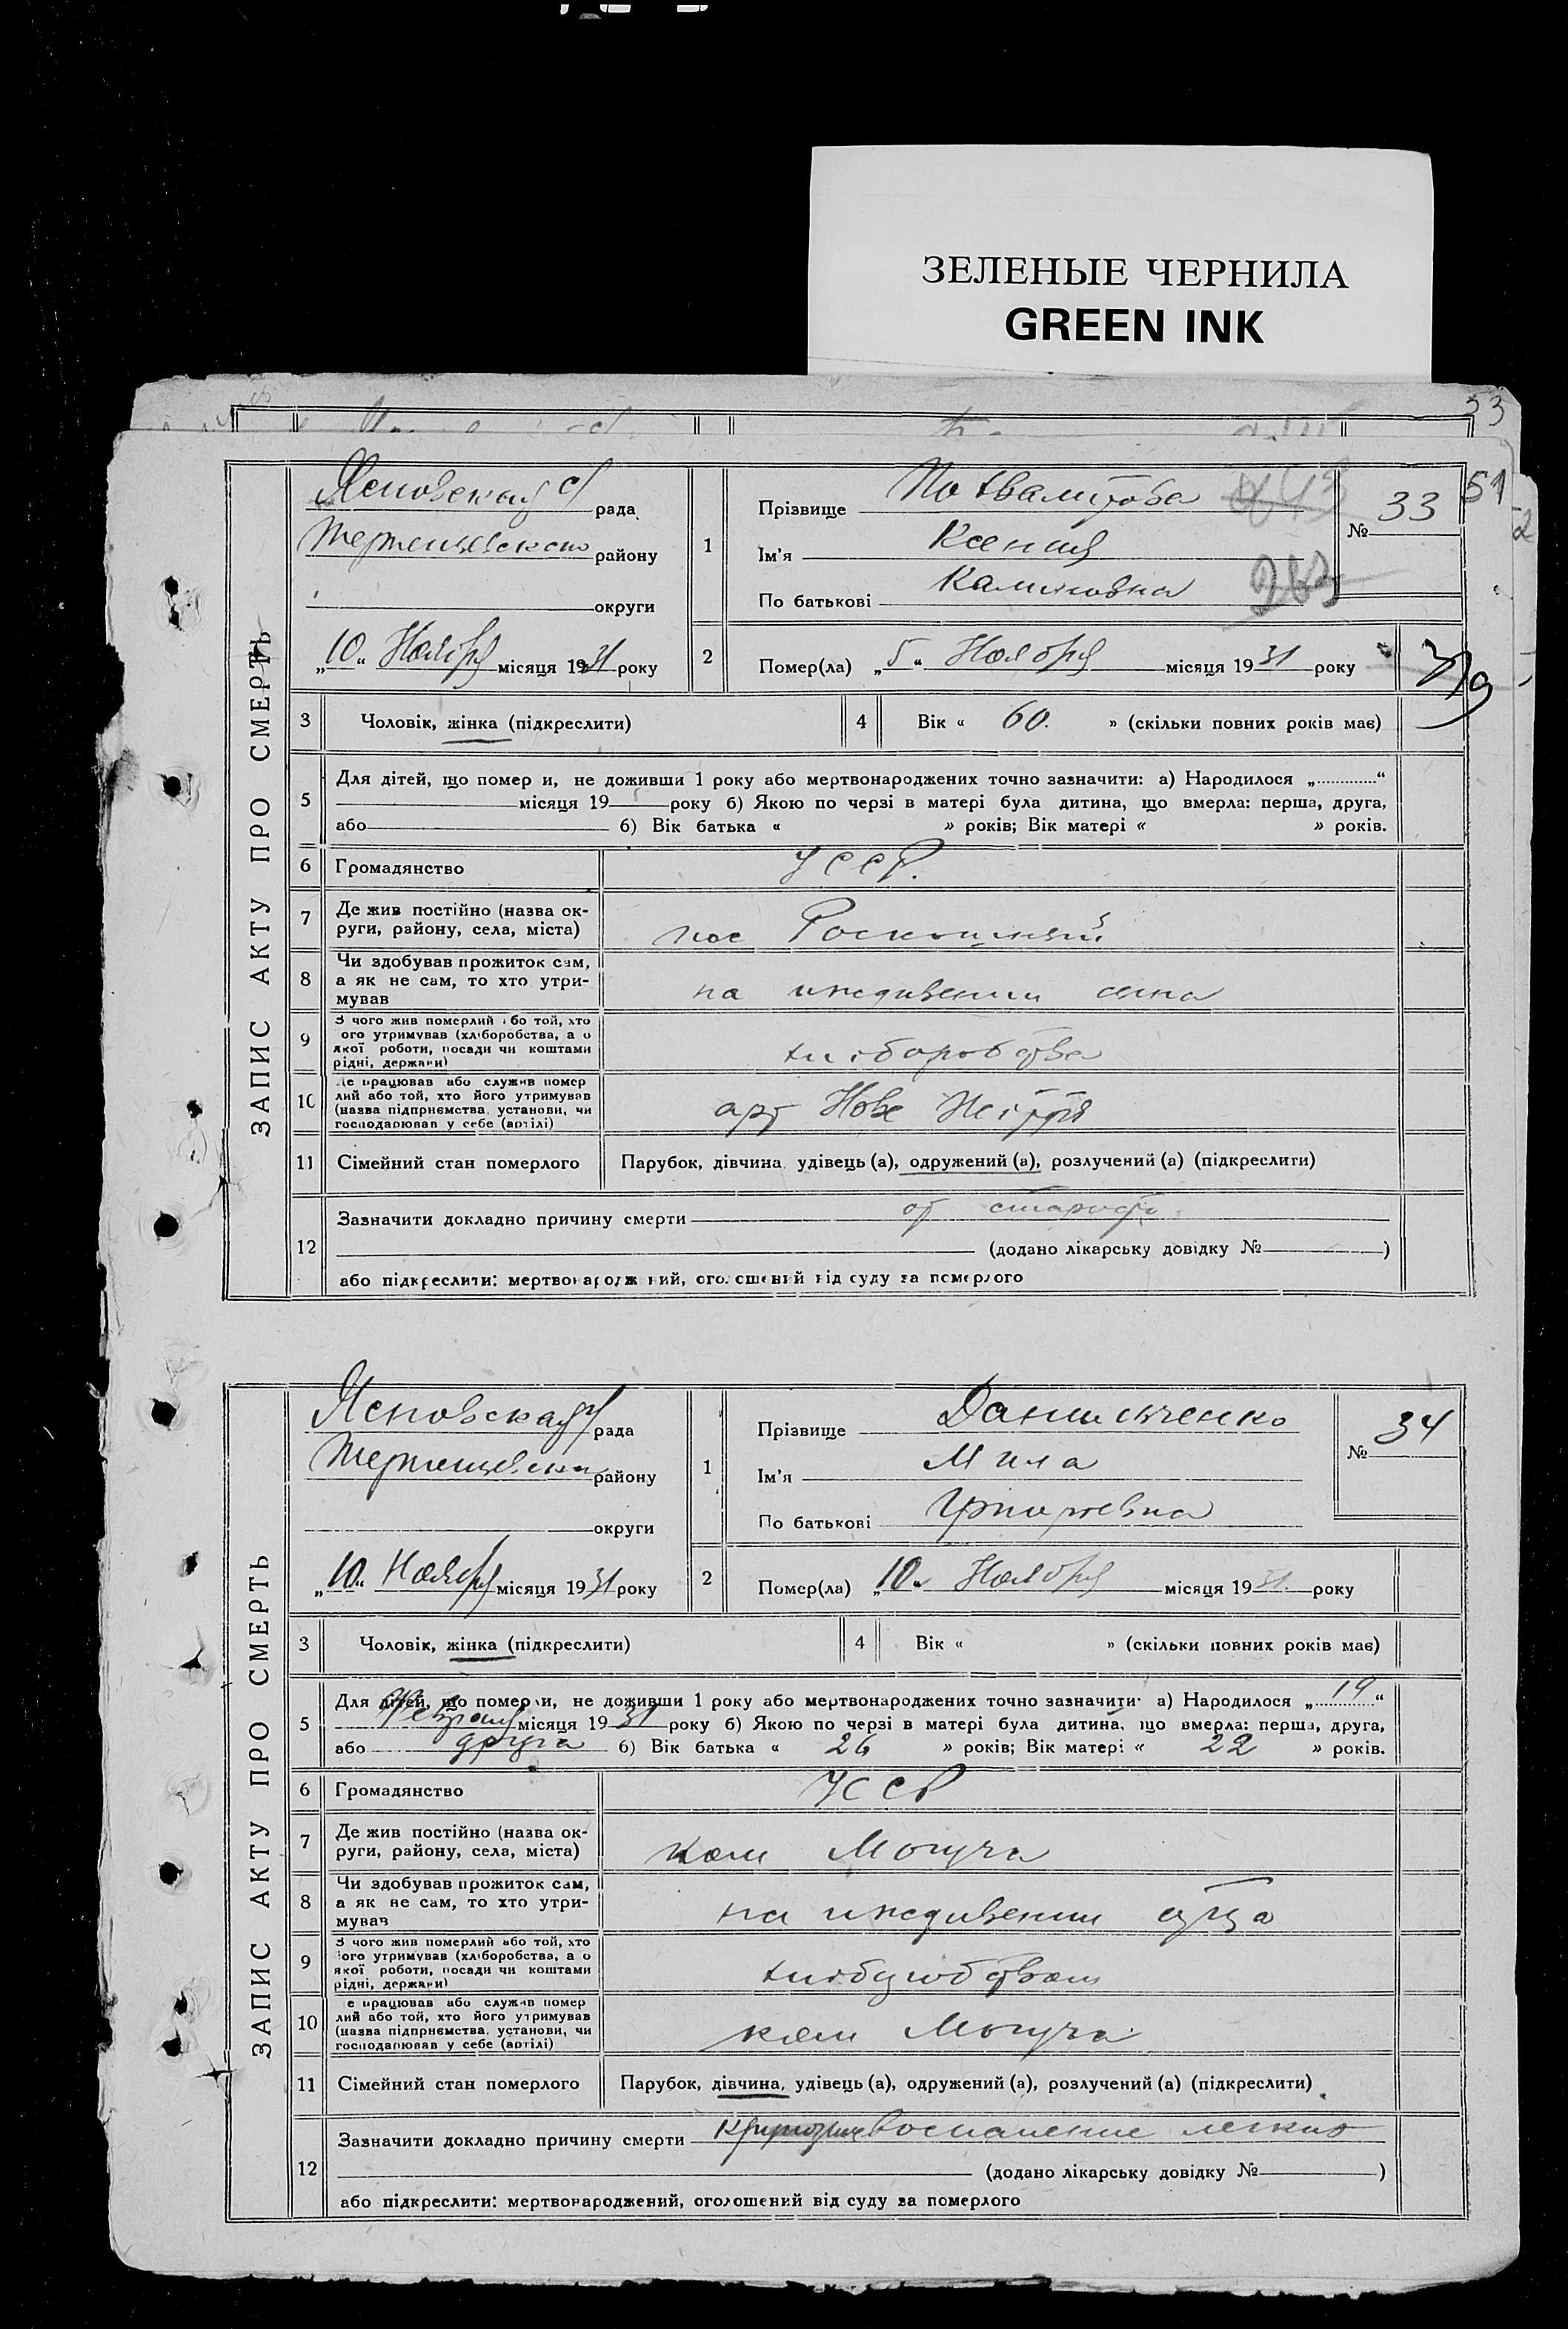 ЗЕЛЕНЫЕ ЧЕРНИЛА
GREEN INK
53
51
52
ЗАПИС АКТУ ПРО СМЕРТЬ
Ясновская с/рада
району
округи
„10“ Ноября місяця 1931 року
1
Прізвище
Ім'я Ксения
По батькові
№ 33
2
Помер(ла) „5“ Ноября місяця 1931 року
3
Чоловік, жінка (підкреслити)
4
Вік « 60. » (скільки повних років має)
5
Для дітей, що помер и, не доживши 1 року або мертвонароджених точно зазначити: а) Народилося „ “
місяця 19 року б) Якою по черзі в матері була дитина, що вмерла: перша, друга,
або б) Вік батька « » років; Вік матері « » років.
6
Громадянство УССР.
7
Де жив постійно (назва ок-
руги, району, села, міста)
пос Роскошный
8
Чи здобував прожиток сам,
а як не сам, то хто утри-
мував
на иждивении сына
9
З чого жив померлий або той, хто
ого утримував (хліборобства, а о
якої роботи, посади чи коштами
рідні, держави)
хліборобства
10
Де працював або служив помер
лий або той, хто його утримував
(назва підприємства, установи, чи
господарював у себе (артілі)
арт Нове Життя
11
Сімейний стан померлого
Парубок, дівчина, удівець (а), одружений (а), розлучений (а) (підкреслити)
12
Зазначити докладно причину смерти от старости
(додано лікарську довідку № )
або підкреслити: мертвонароджений, оголошений від суду за померлого
ЗАПИС АКТУ ПРО СМЕРТЬ
Ясновская с/рада
району
округи
„10“ Ноября місяця 1931 року
1
Прізвище Данильченко
Ім'я Мила
По батькові
№ 34
2
Помер(ла) „10“ Ноября місяця 1931 року
3
Чоловік, жінка (підкреслити)
4
Вік « » (скільки повних років має)
5
Для дітей, що померли, не доживши 1 року або мертвонароджених точно зазначити: а) Народилося „19“
Февраля місяця 1931 року б) Якою по черзі в матері була дитина, що вмерла: перша, друга,
або друга б) Вік батька « 26 » років; Вік матері « 22 » років.
6
Громадянство УССР
7
Де жив постійно (назва ок-
руги, району, села, міста)
ком Могуча
8
Чи здобував прожиток сам,
а як не сам, то хто утри-
мував
на иждивении отца
9
З чого жив померлий або той, хто
ого утримував (хліборобства, а о
якої роботи, посади чи коштами
рідні, держави)
10
е працював або служив помер
лий або той, хто його утримував
(назва підприємства, установи, чи
господарював у себе (артілі)
ком Могуча
11
Сімейний стан померлого
Парубок, дівчина, удівець (а), одружений (а), розлучений (а) (підкреслити)
12
Зазначити докладно причину смерти Воспаление легких
(додано лікарську довідку № )
або підкреслити: мертвонароджений, оголошений від суду за померлого